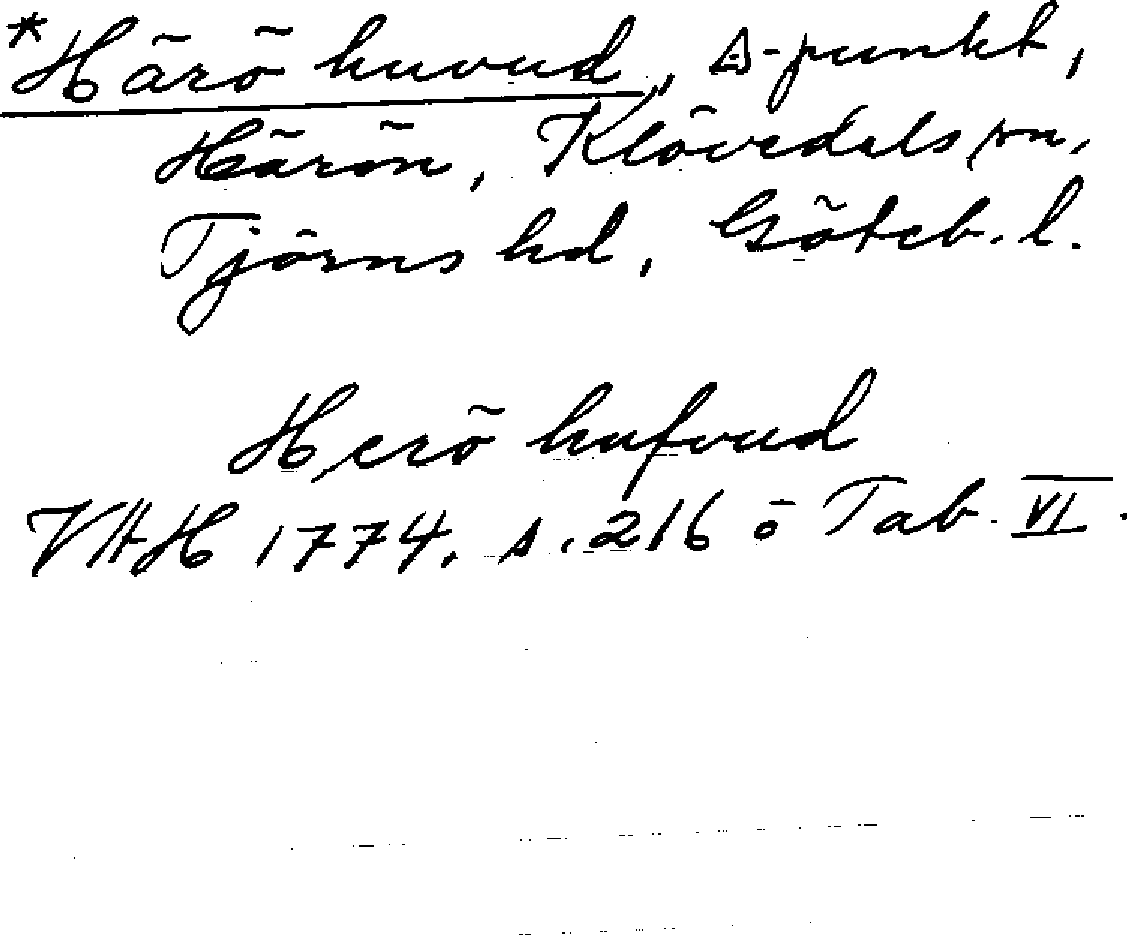 *Härö huvud, △-punkt,
Härön, Klövedals sn,
Tjörns hd, Göteb. l.
Herö hufvud
VAH 1774, s. 216 o Tab. VI.